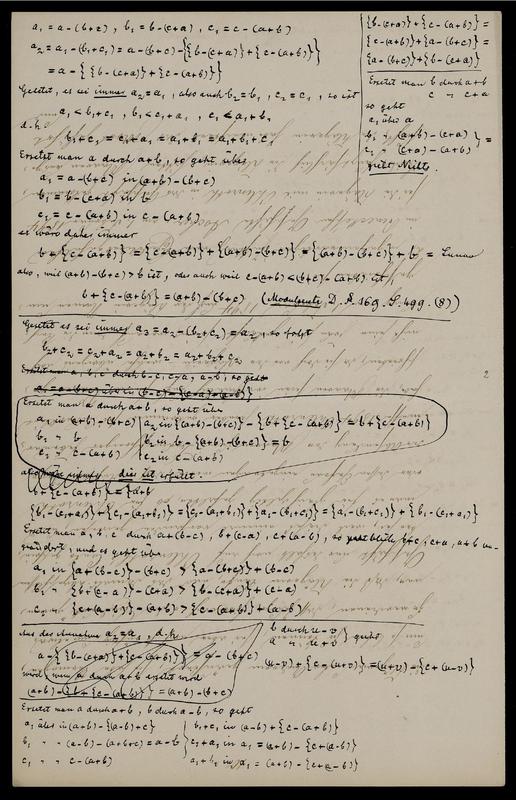 a₁ = a-(b+c) , b₁ = b-(c+a) , c₁ = c-(a+b)
a₂ = a₁-(b₁+c₁) = a-(b+c)-{{b-(c+a)}+{c-(a+b)}}
= a-{{b-(c+a)}+{c-(a+b)}}
Gesetzt, es sei immer a₂=a₁ , also auch b₂=b₁ , c₂=c₁ , so ist
a₁<b₁+c₁ , b₁<c₁+a₁ , c₁<a₁+b₁
d.h.
b₁+c₁ = c₁+a₁ = a₁+b₁ = a₁+b₁+c₁
Ersetzt man a durch a+b, so geht über
a₁ = a-(b+c) in (a+b)-(b+c)
b₁ = b-(c+a) in b
c₁ = c-(a+b) in c-(a+b)
es wäre daher immer
b+{c-(a+b)} = {c-(a+b)}+{(a+b)-(b+c)} = {(a+b)-(b+c)}+b =
also, weil (a+b)-(b+c)>b ist, oder auch weil c-(a+b)<(b+c)-(a+b) ist
b+{c-(a+b)} = (a+b)-(b+c) (Modulgesetz D. §.169. S.499. (8))
{b-(c+a)}+{c-(a+b)} =
{c-(a+b)}+{a-(b+c)} =
{a-(b+c)}+{b-(c+a)}
Ersetzt man b durch a+b
c " c+a
so geht
a₁ über a
b₁ " (a+b)-(c+a)
c₁ " (c+a)-(a+b) } =
giebt Nichts.
Gesetzt es sei immer a₃=a₂-(b₂+c₂)=a₂, so folgt
b₂+c₂ = c₂+a₂ = a₂+b₂ = a₂+b₂+c₂
Ersetzt man a durch a+b, so geht über
a₁ in (a+b)-(b+c) a₂ in {(a+b)-(b+c)}-{b+{c-(a+b)}} = b+{c-(a+b)}
b₁ " b b₂ in b-{(a+b)-(b+c)} = b
c₁ " c-(a+b) c₂ in c-(a+b)
also dies ist erfüllt.
{b₁-(c₁+a₁)}+{c₁-(a₁+b₁)} = {c₁-(a₁+b₁)}+{a₁-(b₁+c₁)} = {a₁-(b₁+c₁)}+{b₁-(c₁+a₁)}
Ersetzt man a, b, c durch a+(b-c), b+(c-a), c+(a-b), so bleibt b+c, c+a, a+b un-
geändert, und es geht über
a₁ in {a+(b-c)}-(b+c) > {a-(b+c)}+(b-c)
b₁ " {b+(c-a)}-(c+a) > {b-(c+a)}+(c-a)
c₁ " {c+(a-b)}-(a+b) > {c-(a+b)}+(a-b)
Aus der Annahme a₂=a₁, d.h.
a-{{b-(c+a)}+{c-(a+b)}} = a-(b+c)
wird wenn a durch a+b ersetzt wird
(a+b)-{b+{c-(a+b)}} = (a+b)-(b+c)
b durch u-v
a " u+v } giebt
(u-v)+{c-(u+v)} = (u+v)-{c+(u-v)}
Ersetzt man a durch a+b, b durch a-b, so geht
a₁ über in (a+b)-{(a-b)+c} b₁+c₁ in (a-b)+{c-(a+b)}
b₁ " " (a-b)-(a+b+c) = a-b c₁+a₁ in a₁ = (a+b)-{c+(a-b)}
c₁ " " c-(a+b) a₁+b₁ in a₁ = (a+b)-{c+(a-b)}